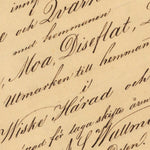 och Qvarn
med hemmanen
Moa, Diseflat,
Utmarken till hemman
i
Wiske Härad och
för laga skifte åren
Wallmo